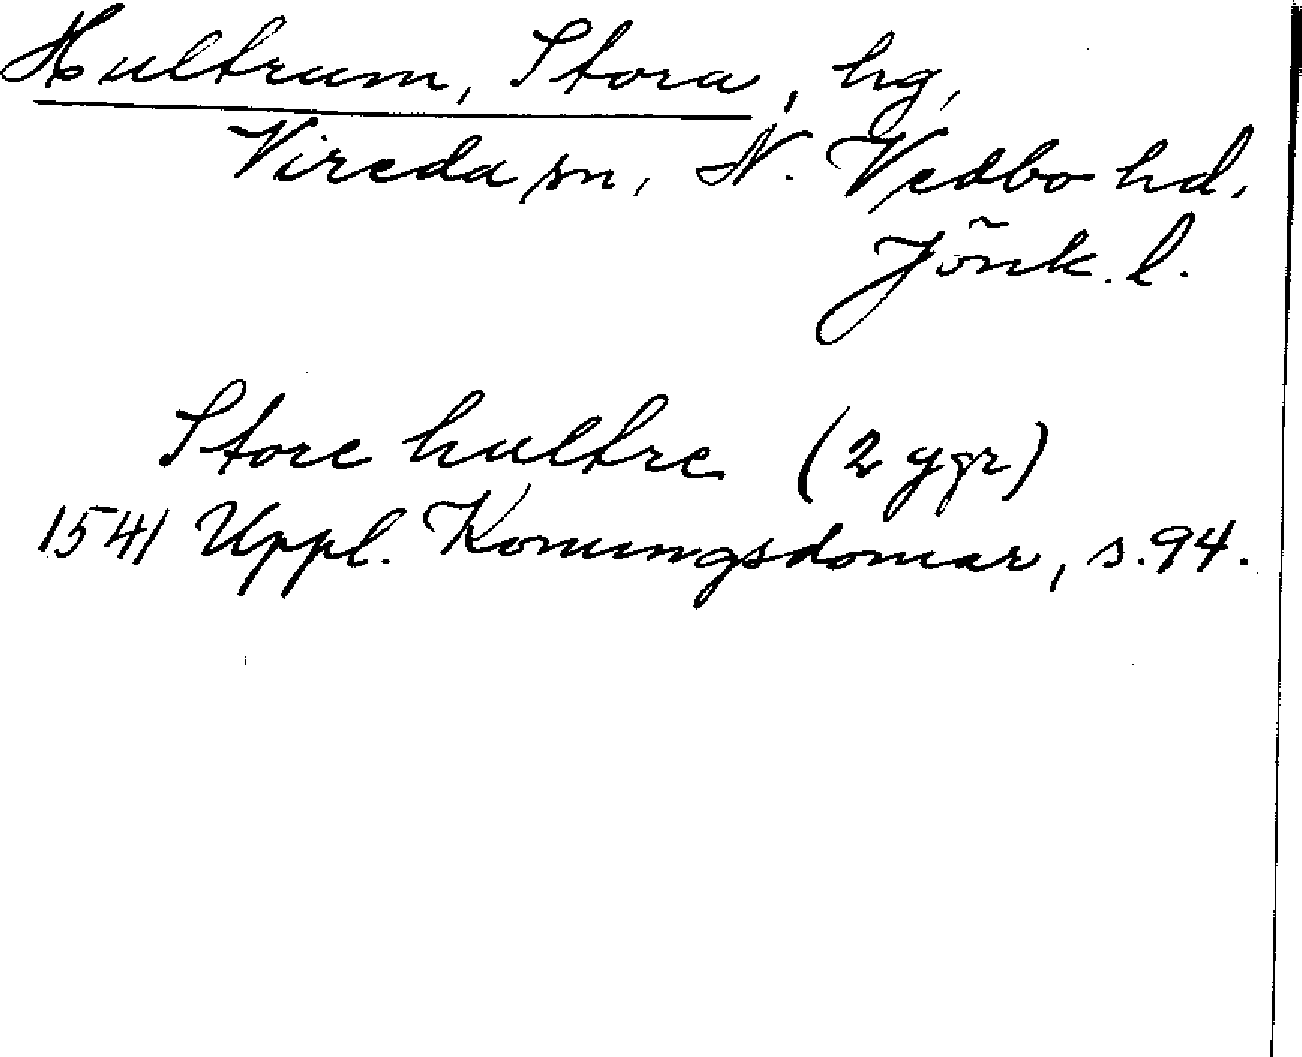 Hultrum, Stora, hg,
Vireda sn, N. Vedbo hd,
Jönk. l.
Store hultre (2 ggr)
1541 Uppl. Konungsdomar, s. 94.